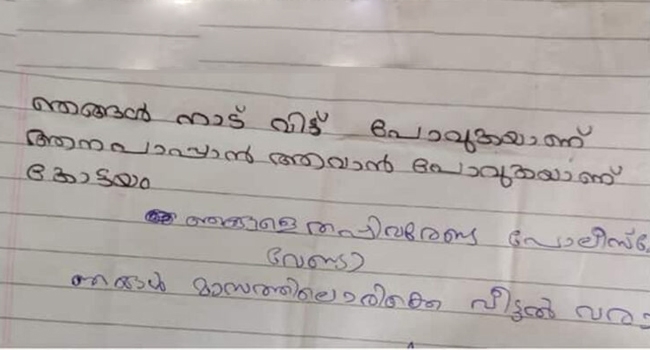 ഞങ്ങൾ നാട് വിട്ട് പോവുകയാണ്
ആനപാപ്പാൻ ആവാൻ പോവുകയാണ്
കോട്ടയം
ഞങ്ങളെ തപ്പിവരേണ്ട പോലീസും
വേണ്ടാ
ഞങ്ങൾ മാസത്തിലൊരിക്കെ വീട്ടൽ വരാ